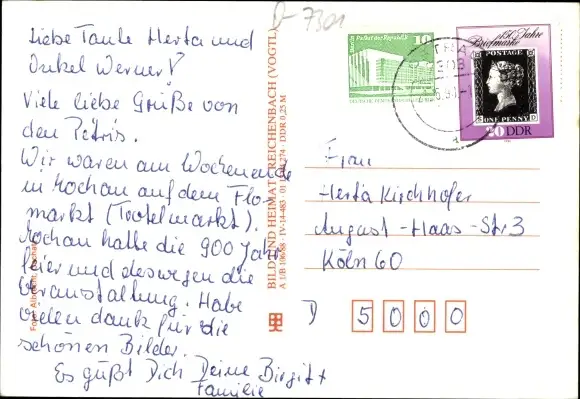 D-7301
Liebe Tante Herta und
Onkel Werner!
Viele liebe Grüße von
den Petris.
Wir waren am Wochenende
in Mochau auf dem Flo-
markt (Trötelmarkt).
Mochau hatte die 900 Jahr
feier und deswegen die
Veranstaltung. Habe
vielen dank für die
schönen Bilder.
Es güßt Dich Deine Birgit +
Familie
BILD UND HEIMAT REICHENBACH (VOGTL)
DDR 0,25 M
Palast der Republik
10
150 Jahre
Briefmarke
POSTAGE
ONE PENNY
20 DDR
Frau
Herta Kirchhofer
August-Haas-Str 3
Köln 60
D 5000